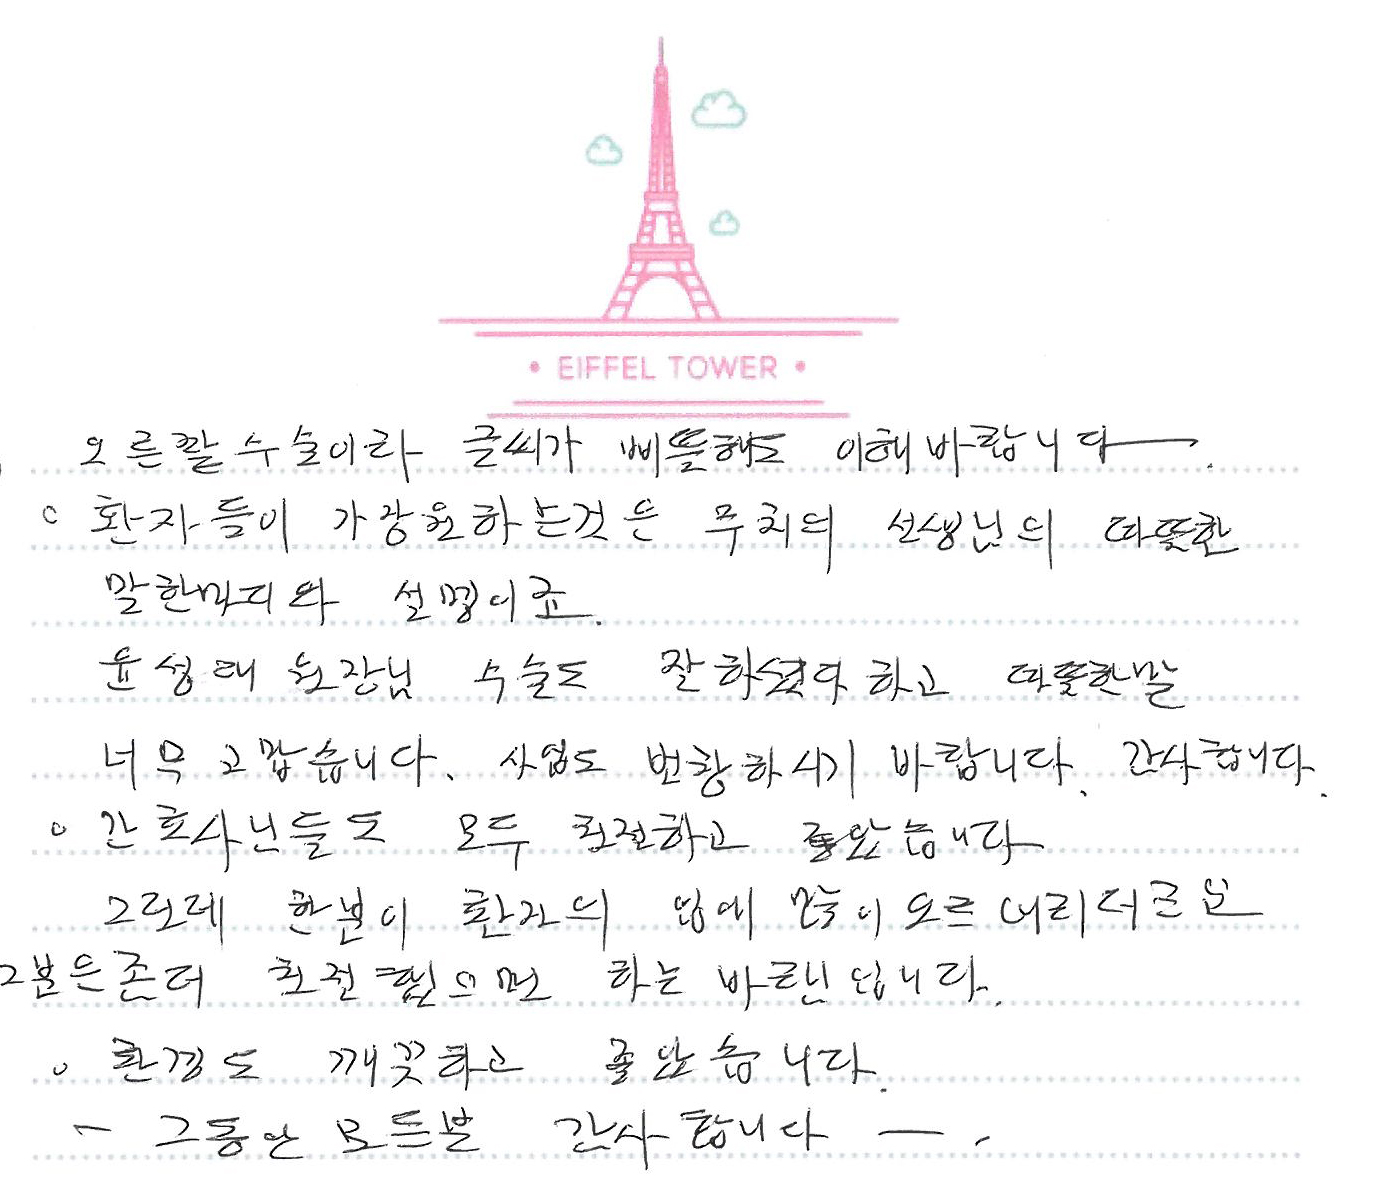 • EIFFEL TOWER •
오른팔 수술이라 글씨가 삐뚤해도 이해바랍니다.
환자들이 가장원하는것은 무치의 선생님의 따뜻한
말한마디와 설명이죠.
윤성대 원장님 수술도 잘하셨다하고 따뜻한말
너무 고맙습니다. 사업도 번창하시기 바랍니다. 감사합니다.
간호사님들도 모두 친절하고 좋았습니다
그런데 한분이 환자의 많이
그분은 존더 친절했으면 하는 바램입니다.
환경도 깨끗하고 좋았습니다.
- 그동안 모든분 감사합니다 -.